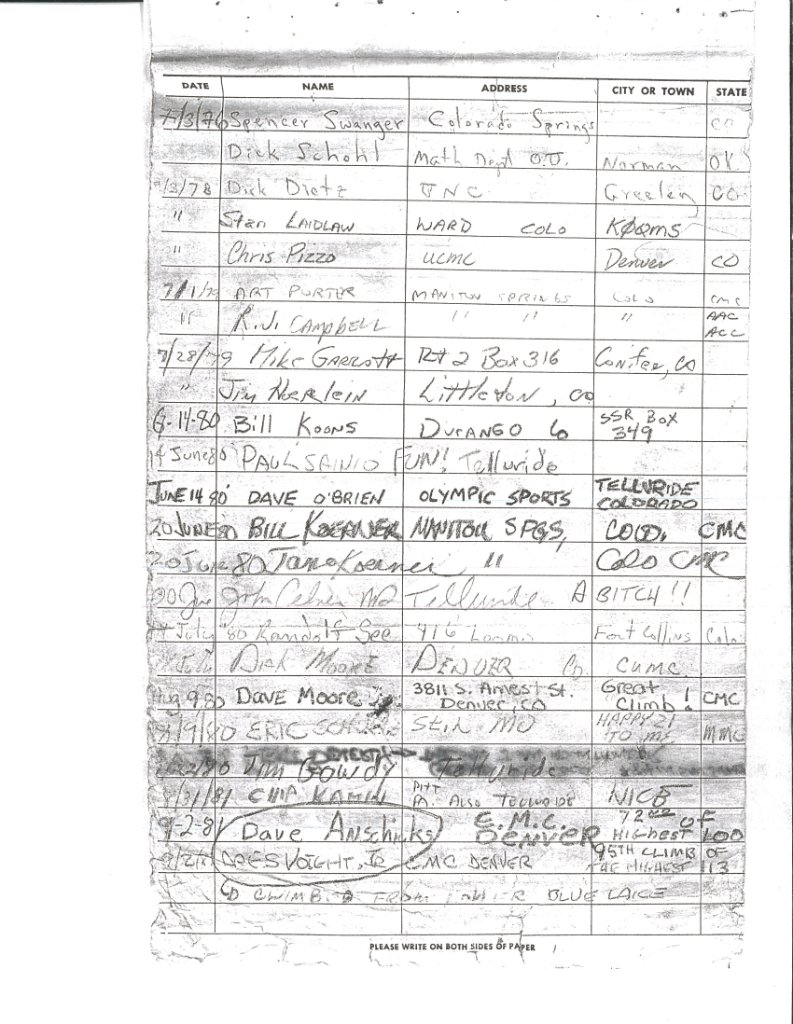 DATE NAME ADDRESS CITY OR TOWN STATE
7/3/76 Spencer Swanger Colorado Springs CO
Dick Schohl Math Dept O.U. Norman OK.
/3/78 Dick Dietz UNC Greeley CO
" Stan LAIDLAW WARD COLO KØQMS
" Chris Pizzo UCMC Denver CO
7/1/79 ART PORTER MANITOU SPRINGS COLO CMC
" R.J. CAMPBELL " " " AAC ACC
7/28/79 Mike GARRATT Rt 2 Box 316 Conifer, CO
" Jim Littleton, CO
6-14-80 Bill KOONS DURANGO CO SSR BOX 349
14 June 80 PAUL SAINIO FUN! Telluride
JUNE 14 80 DAVE O'BRIEN OLYMPIC SPORTS TELLURIDE COLORADO
20 JUNE 80 BILL KOERNER MANITOU SPGS, COLO, CMC
20 June 80 Jane Koerner, " Colo CMC
20 June John MD Telluride A BITCH!!
July '80 Randolf See 416 Loomis Fort Collins Colo
July Dick MOORE DENVER Co. CUMC
Aug 9 80 DAVE MOORE 3811 S. St. Denver, CO Great Climb! CMC
8/9/80 ERIC MO HAPPY 21 TO ME MMC
/22/80 Jim GOWDY Telluride
8/31/81 CHIP PITT PA. ALSO TELLURIDE NICE
9-2-81 Dave Anschicks C.M.C. DENVER 72nd OF HIGHEST 100
9/2/81 VOIGHT, JR CMC DENVER 95TH CLIMB OF THE HIGHEST 113
CLIMBED FROM BLUE LAKE
PLEASE WRITE ON BOTH SIDES OF PAPER